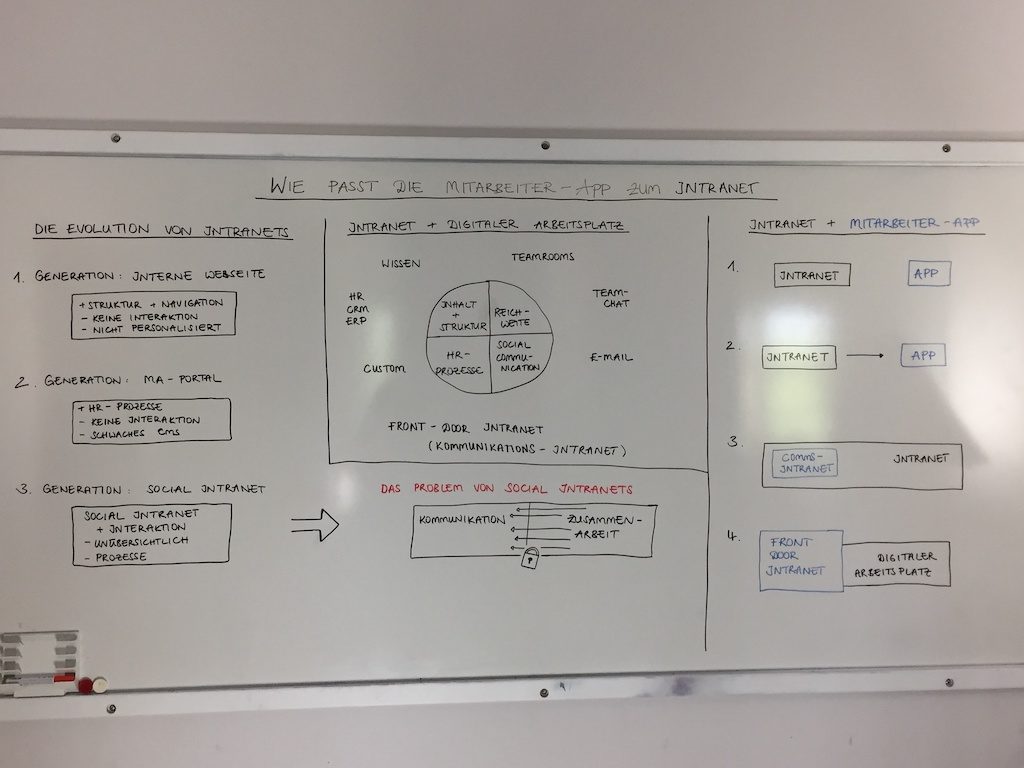 WIE PASST DIE MITARBEITER-APP ZUM INTRANET
DIE EVOLUTION VON INTRANETS
1. GENERATION: INTERNE WEBSEITE
+ STRUKTUR + NAVIGATION
- KEINE INTERAKTION
- NICHT PERSONALISIERT
2. GENERATION: MA-PORTAL
+ HR-PROZESSE
- KEINE INTERAKTION
- SCHWACHES CMS
3. GENERATION: SOCIAL INTRANET
SOCIAL INTRANET
+ INTERAKTION
- UNÜBERSICHTLICH
- PROZESSE
INTRANET + DIGITALER ARBEITSPLATZ
WISSEN
TEAMROOMS
HR
CRM
ERP
TEAM-
CHAT
INHALT
+
STRUKTUR
REICH-
WEITE
HR-
PROZESSE
SOCIAL
COMMU-
NICATION
CUSTOM
E-MAIL
FRONT-DOOR INTRANET
(KOMMUNIKATIONS-INTRANET)
DAS PROBLEM VON SOCIAL INTRANETS
KOMMUNIKATION
ZUSAMMEN-
ARBEIT
INTRANET + MITARBEITER-APP
1.
INTRANET
APP
2.
INTRANET
APP
3.
COMMS-
INTRANET
INTRANET
4.
FRONT
DOOR
INTRANET
DIGITALER
ARBEITSPLATZ